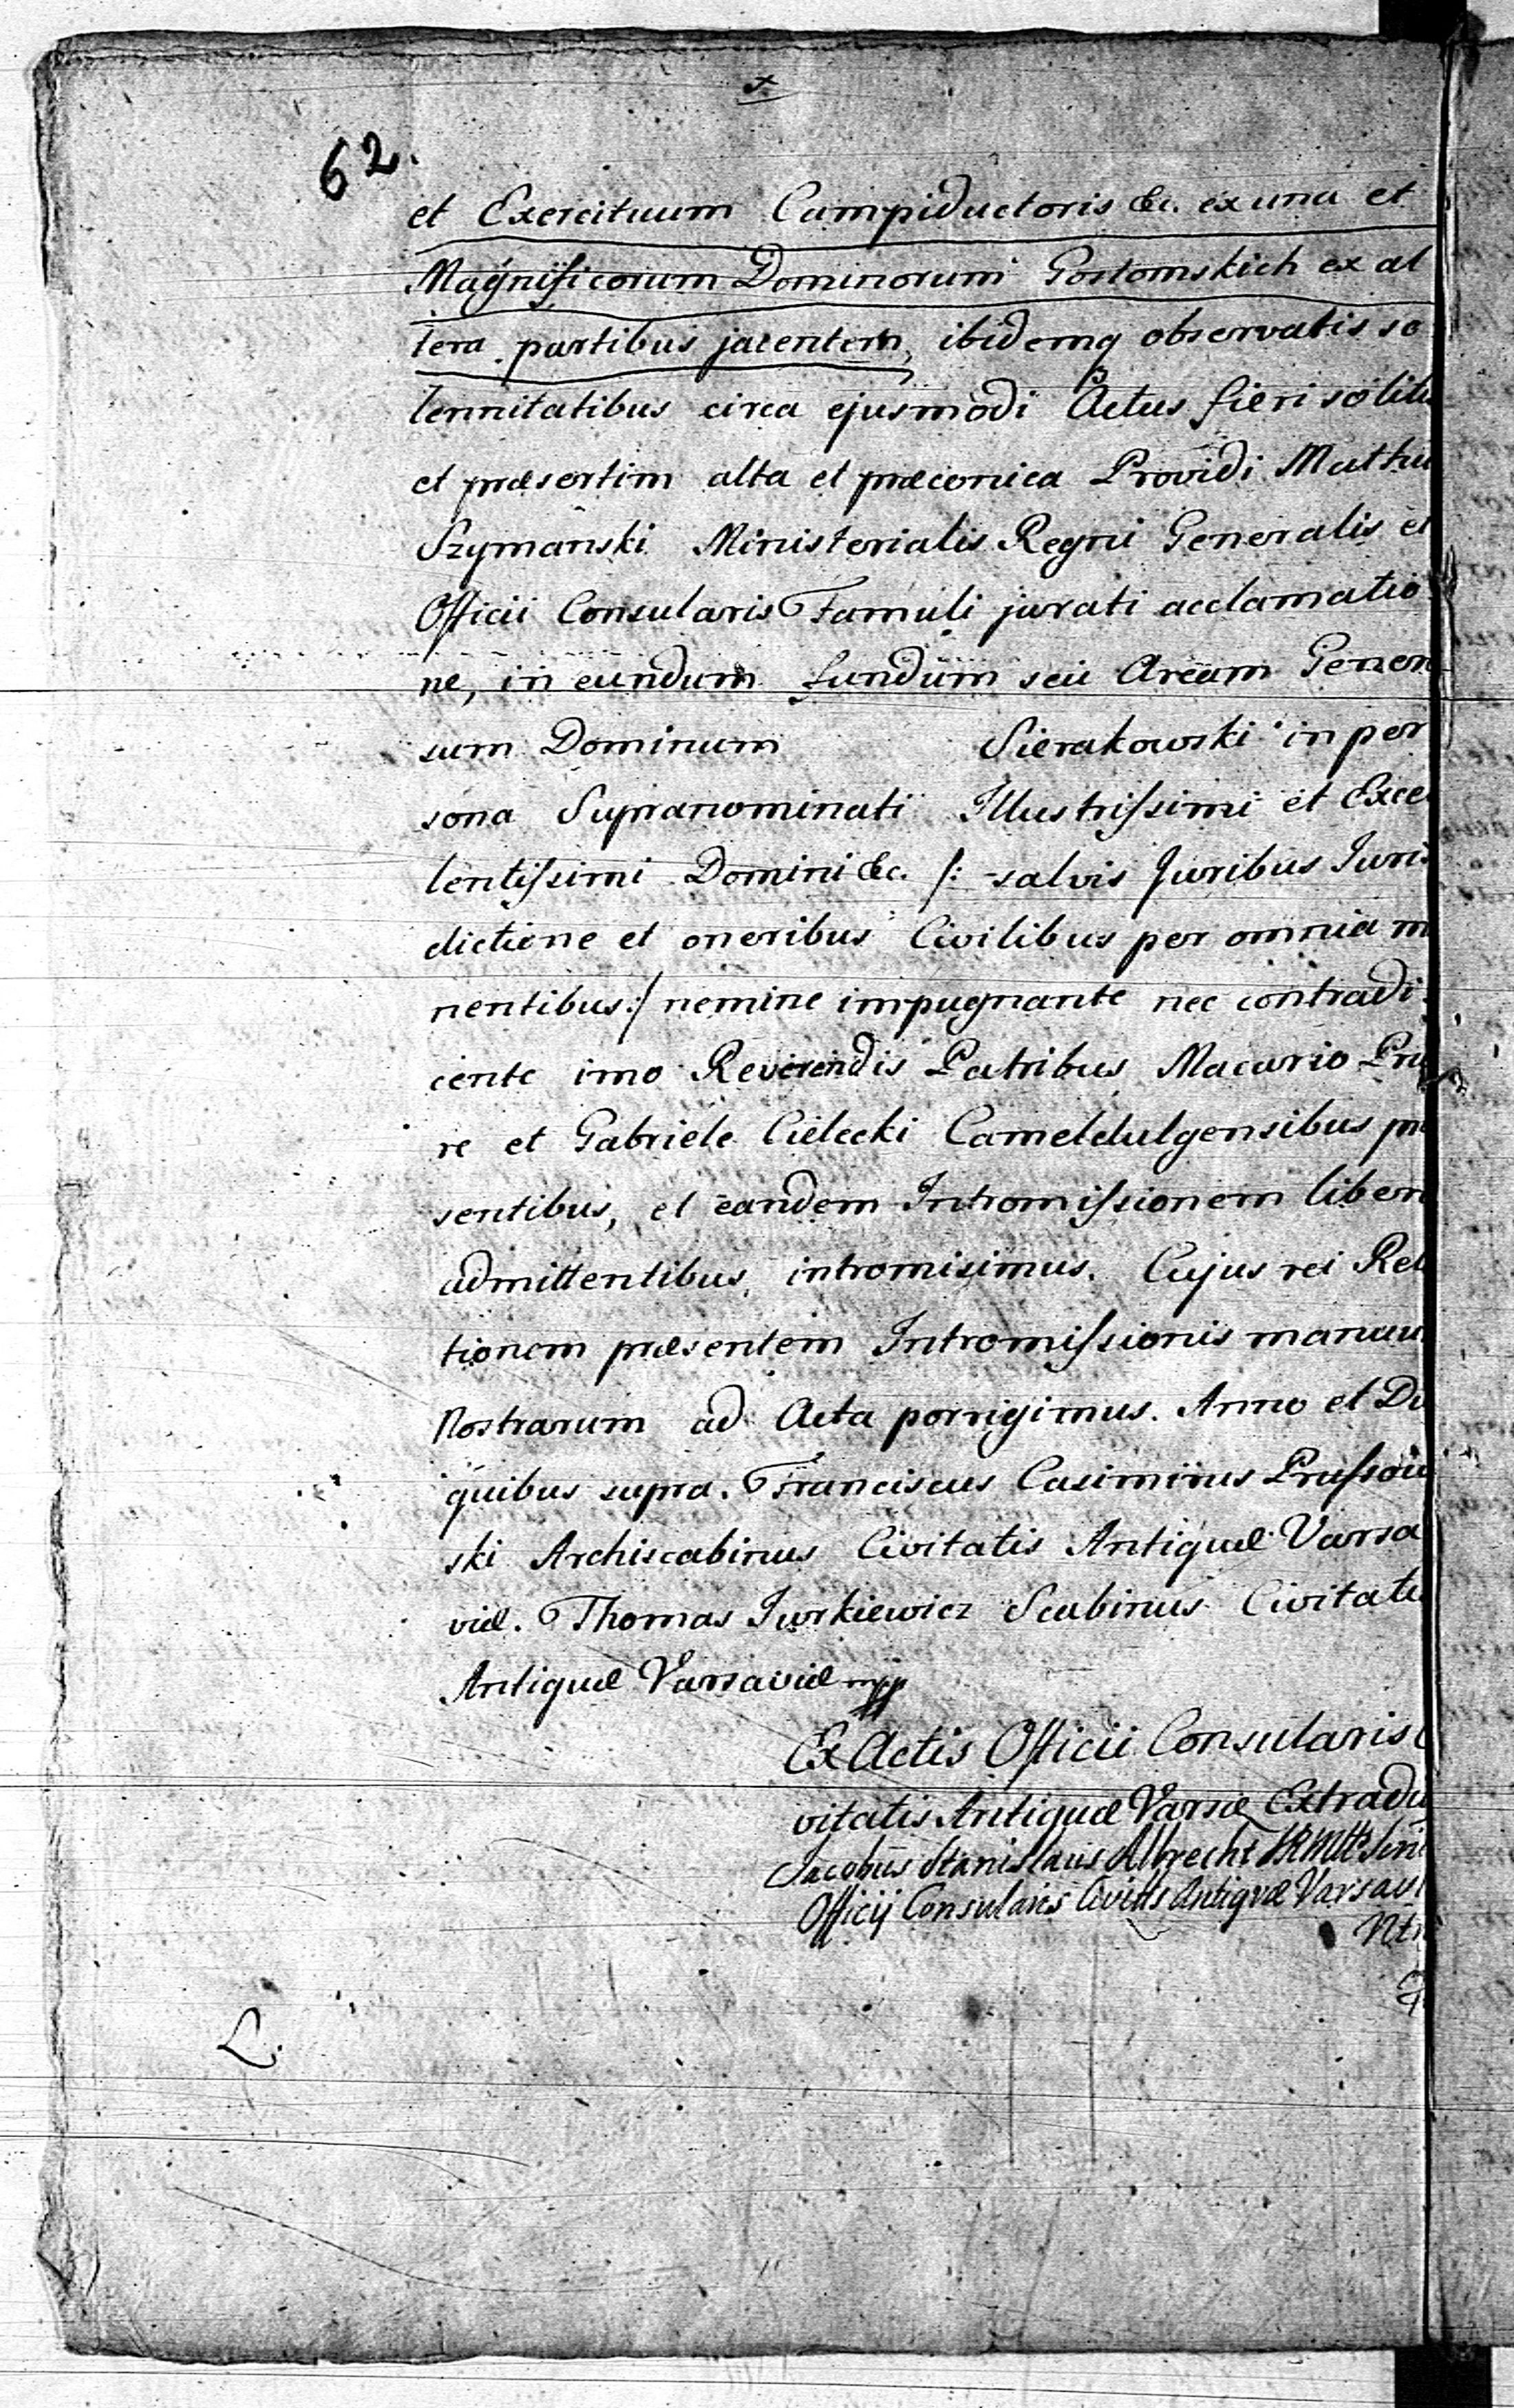 62.
et Exercituum Campiductoris &c. ex una et
Magnificorum Dominorum Gostomskich ex al
tera partibus jacentem, ibidemq observatis so
lennitatibus circa ejusmodi Actus fieri solitis
et præsertim alta et præconica Providi Matthæ
Szymanski Ministerialis Regni Generalis et
Officii Consularis Famuli jurati acclamatio
ne, in eundum fundum seu Aream Genero
sum Dominum Sierakowski in per
sona Supranominati Illustrissimi et Excel
lentissimi Domini &c. /: salvis Juribus Juris
dictione et oneribus Civilibus per omnia m
nentibus :/ nemine impugnante nec contradi
cente imo Reverendis Patribus Macario Prio
re et Gabriele Cielecki Cameldulgensibus præ
sentibus, et eandem Intromissionem libere
admittentibus, intromisimus. Cujus rei Rela
tionem præsentem Intromissionis manuu
Nostrarum ad Acta porrigimus. Anno et Die
quibus supra. Franciscus Casimirus Prussow
ski Archiscabinus Civitatis Antiquæ Varsa
viæ. Thomas Jurkiewicz Scabinus Civitatis
Antiquæ Varsaviæ mpp
Ex Actis Officii Consularis Ci
vitatis Antiquæ Varsæ Extradit
Jacobus Stanislaus Albrecht
Officij Consularis Civitts Antiquæ Varsavi
Nt
L.